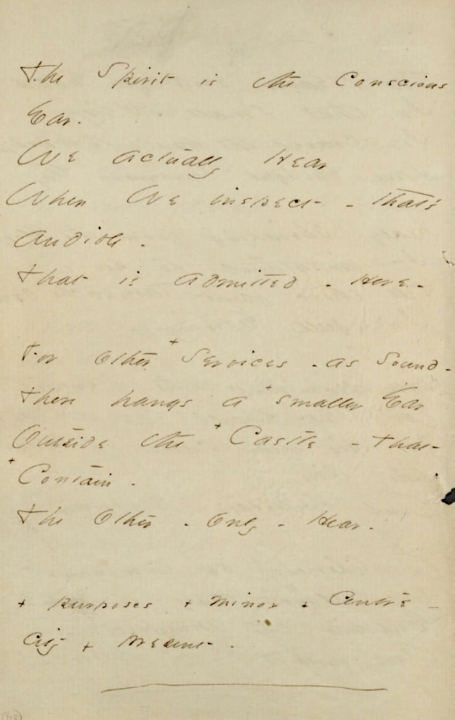 The Spirit is the Conscious
Ear.
We actually Hear
When We inspect - that's
audible -
that is admitted - Here -
For other + Services - as Sound -
there hangs a + smaller Ear
Outside the + Castle - that -
+ Contain -
the other - only - Hear -
+ purposes + minor + Centre -
City + present -